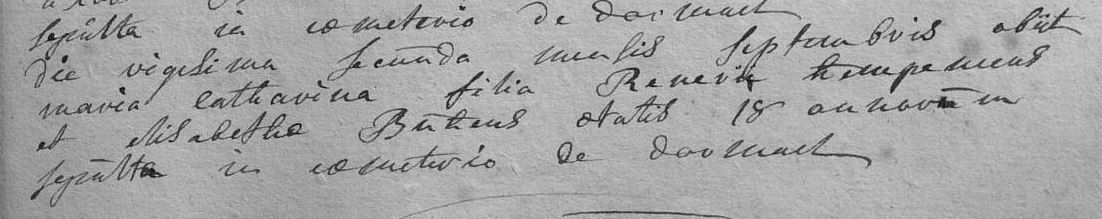 sepulta in cœmeterio de dormael
die vigesima secunda mensis septembris obiit
maria catharina filia Reneri hempeneus
et elisabethæ Buttiens ætatis 18 annorum
sepulta in cœmeterio de dormael